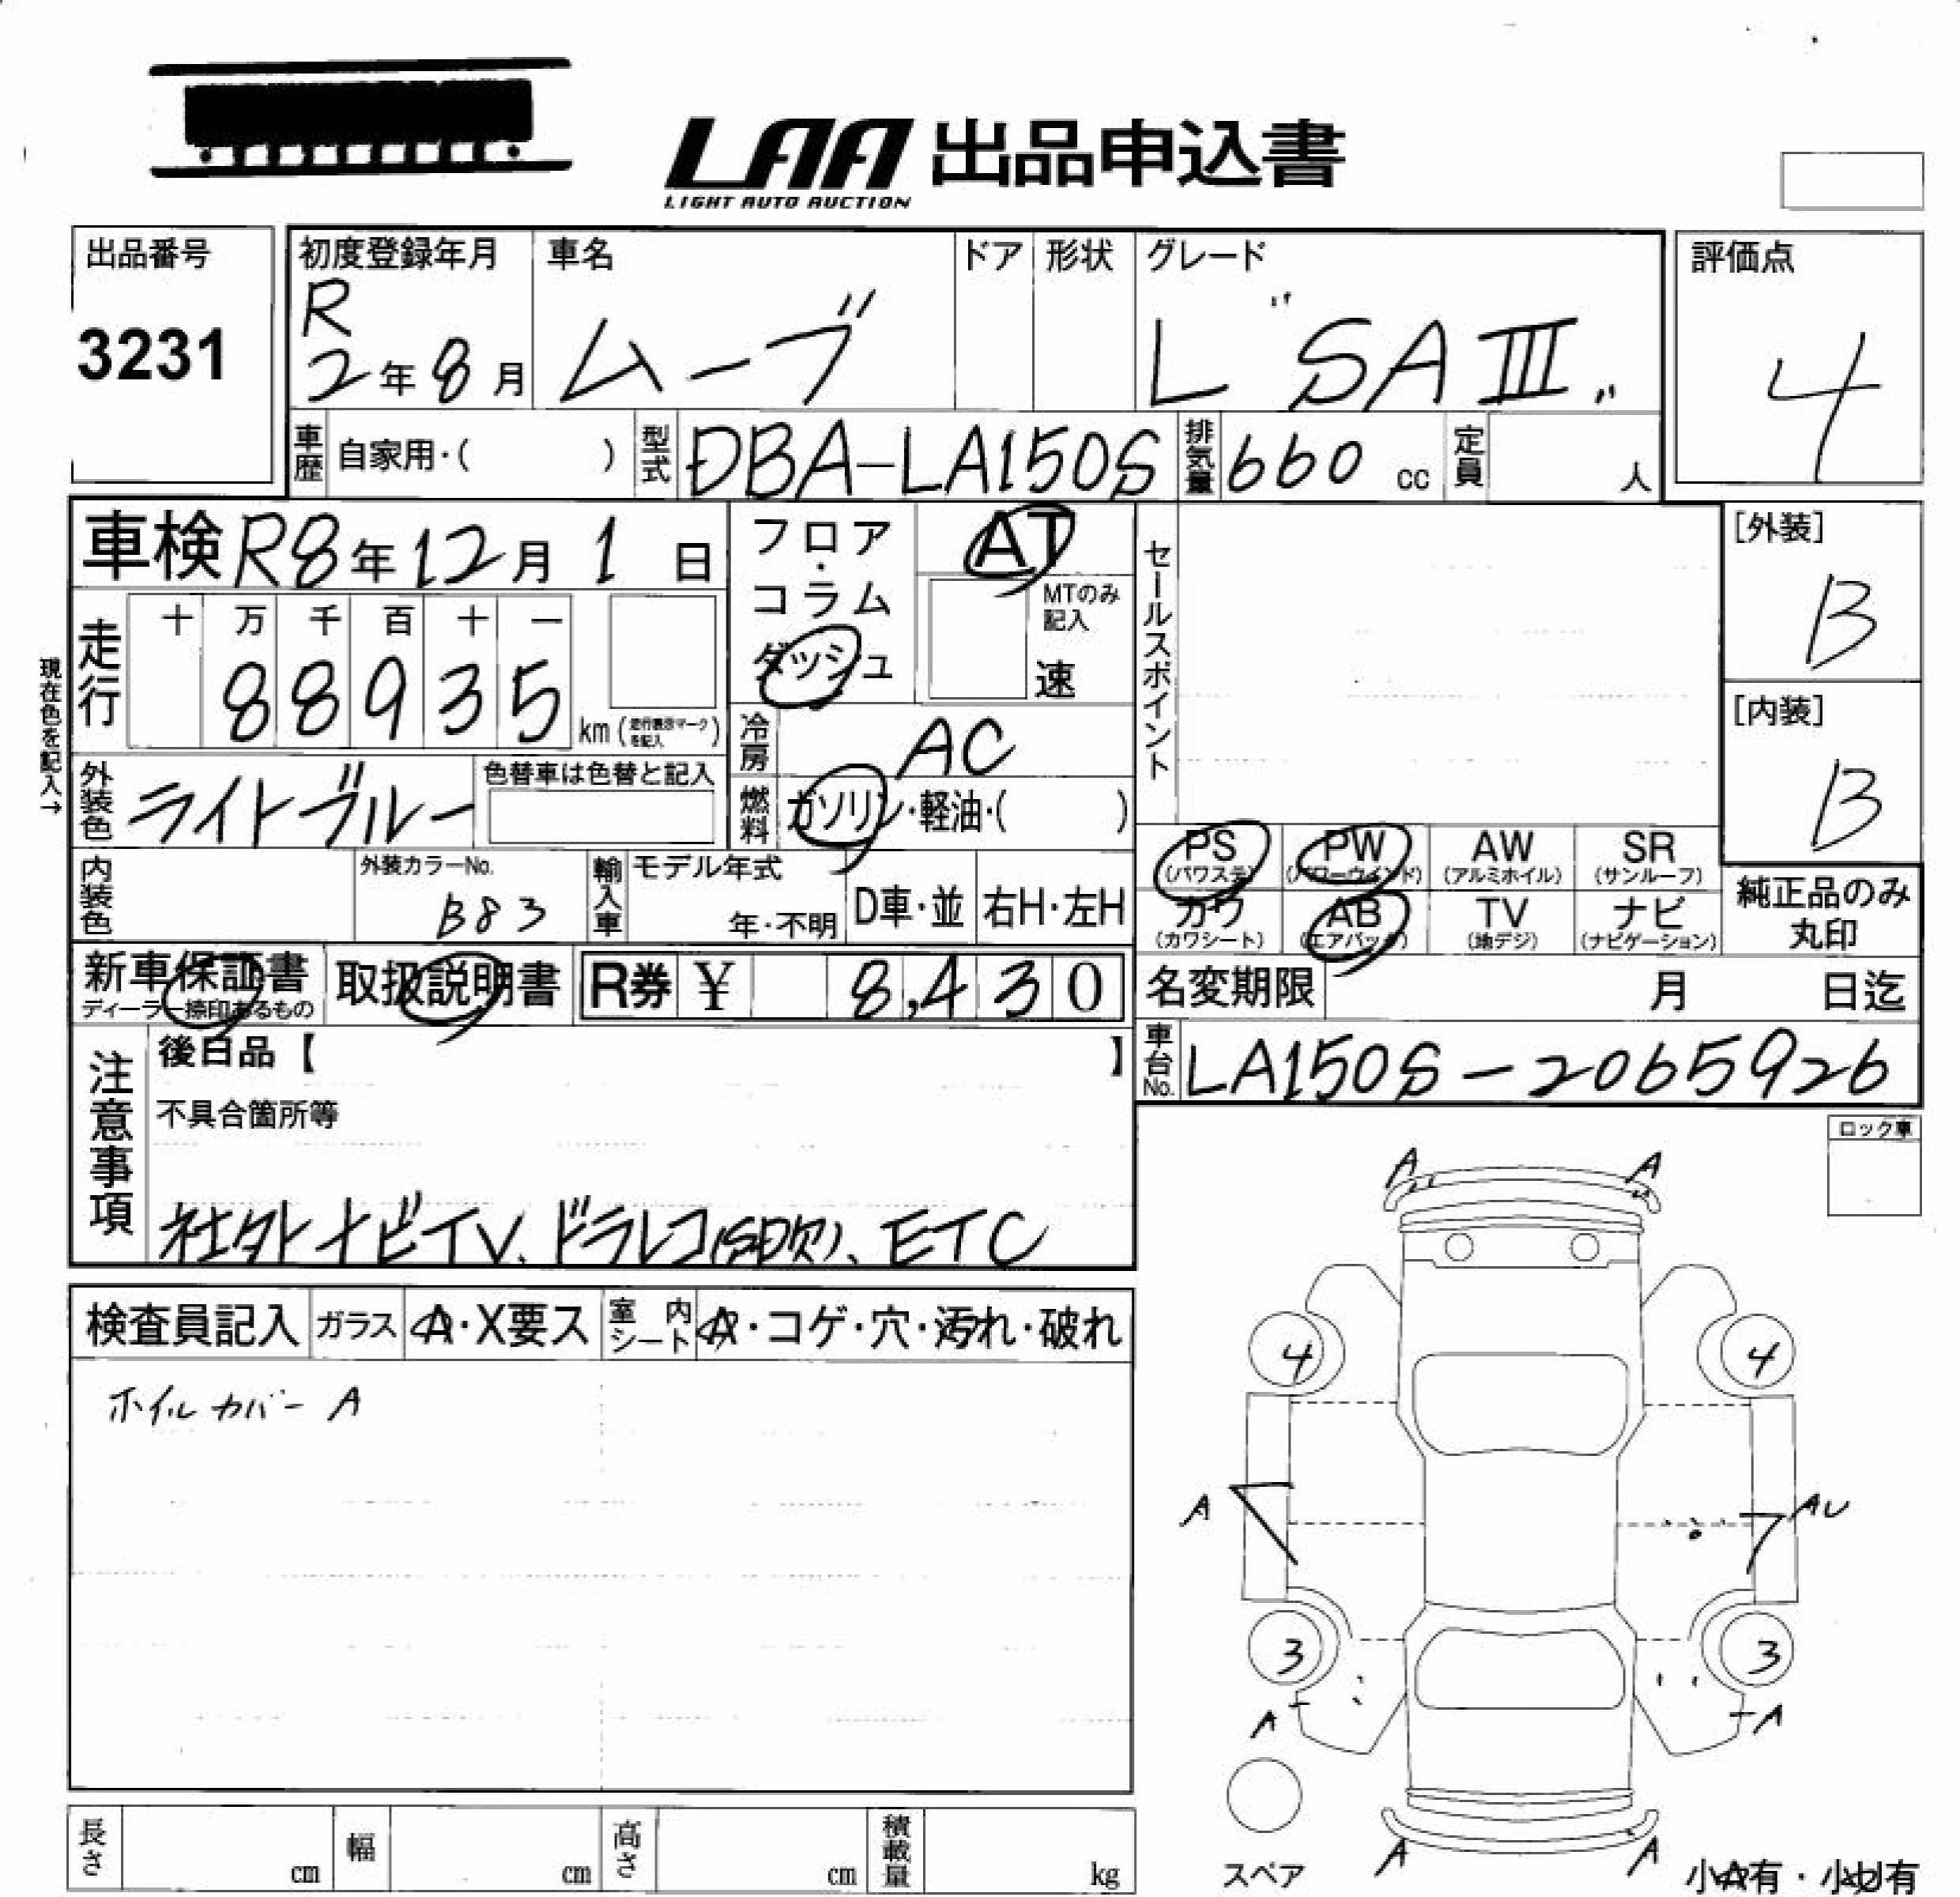 LAA 出品申込書
LIGHT AUTO AUCTION
出品番号
3231
初度登録年月
R
2年8月
車名
ムーブ
ドア
形状
グレード
L "SAⅢ"
評価点
4
車歴
自家用・( )
型式
DBA-LA150S
排気量
660 cc
定員
人
車検 R8年12月1日
フロア・
コラム
ダッシュ
AT
MTのみ
記入
速
セールスポイント
[外装]
B
[内装]
B
現在色を記入→
走行
十 万 千 百 十 一
8 8 9 3 5
km (走行表示マークを記入)
冷房
AC
外装色
ライトブルー
色替車は色替と記入
燃料
ガソリン・軽油・( )
内装色
外装カラーNo.
B83
輸入車
モデル年式
年・不明
D車・並
右H・左H
PS
(パワステ)
PW
(パワーウインド)
AW
(アルミホイル)
SR
(サンルーフ)
カワ
(カワシート)
AB
(エアバック)
TV
(地デジ)
ナビ
(ナビゲーション)
純正品のみ
丸印
新車保証書
ディーラー捺印あるもの
取扱説明書
R券 ¥ 8,430
名変期限 月 日迄
車台No.
LA150S-2065926
注意事項
後日品【 】
不具合箇所等
社外ナビTV、ドラレコ(SD欠)、ETC
ロック車
検査員記入
ガラス
A・X要ス
室内シート
A・コゲ・穴・汚れ・破れ
ホイルカバー A
A
A
4
4
A
AU
3
3
A
A
A
A
スペア
小A有・小U有
長さ
cm
幅
cm
高さ
cm
積載量
kg